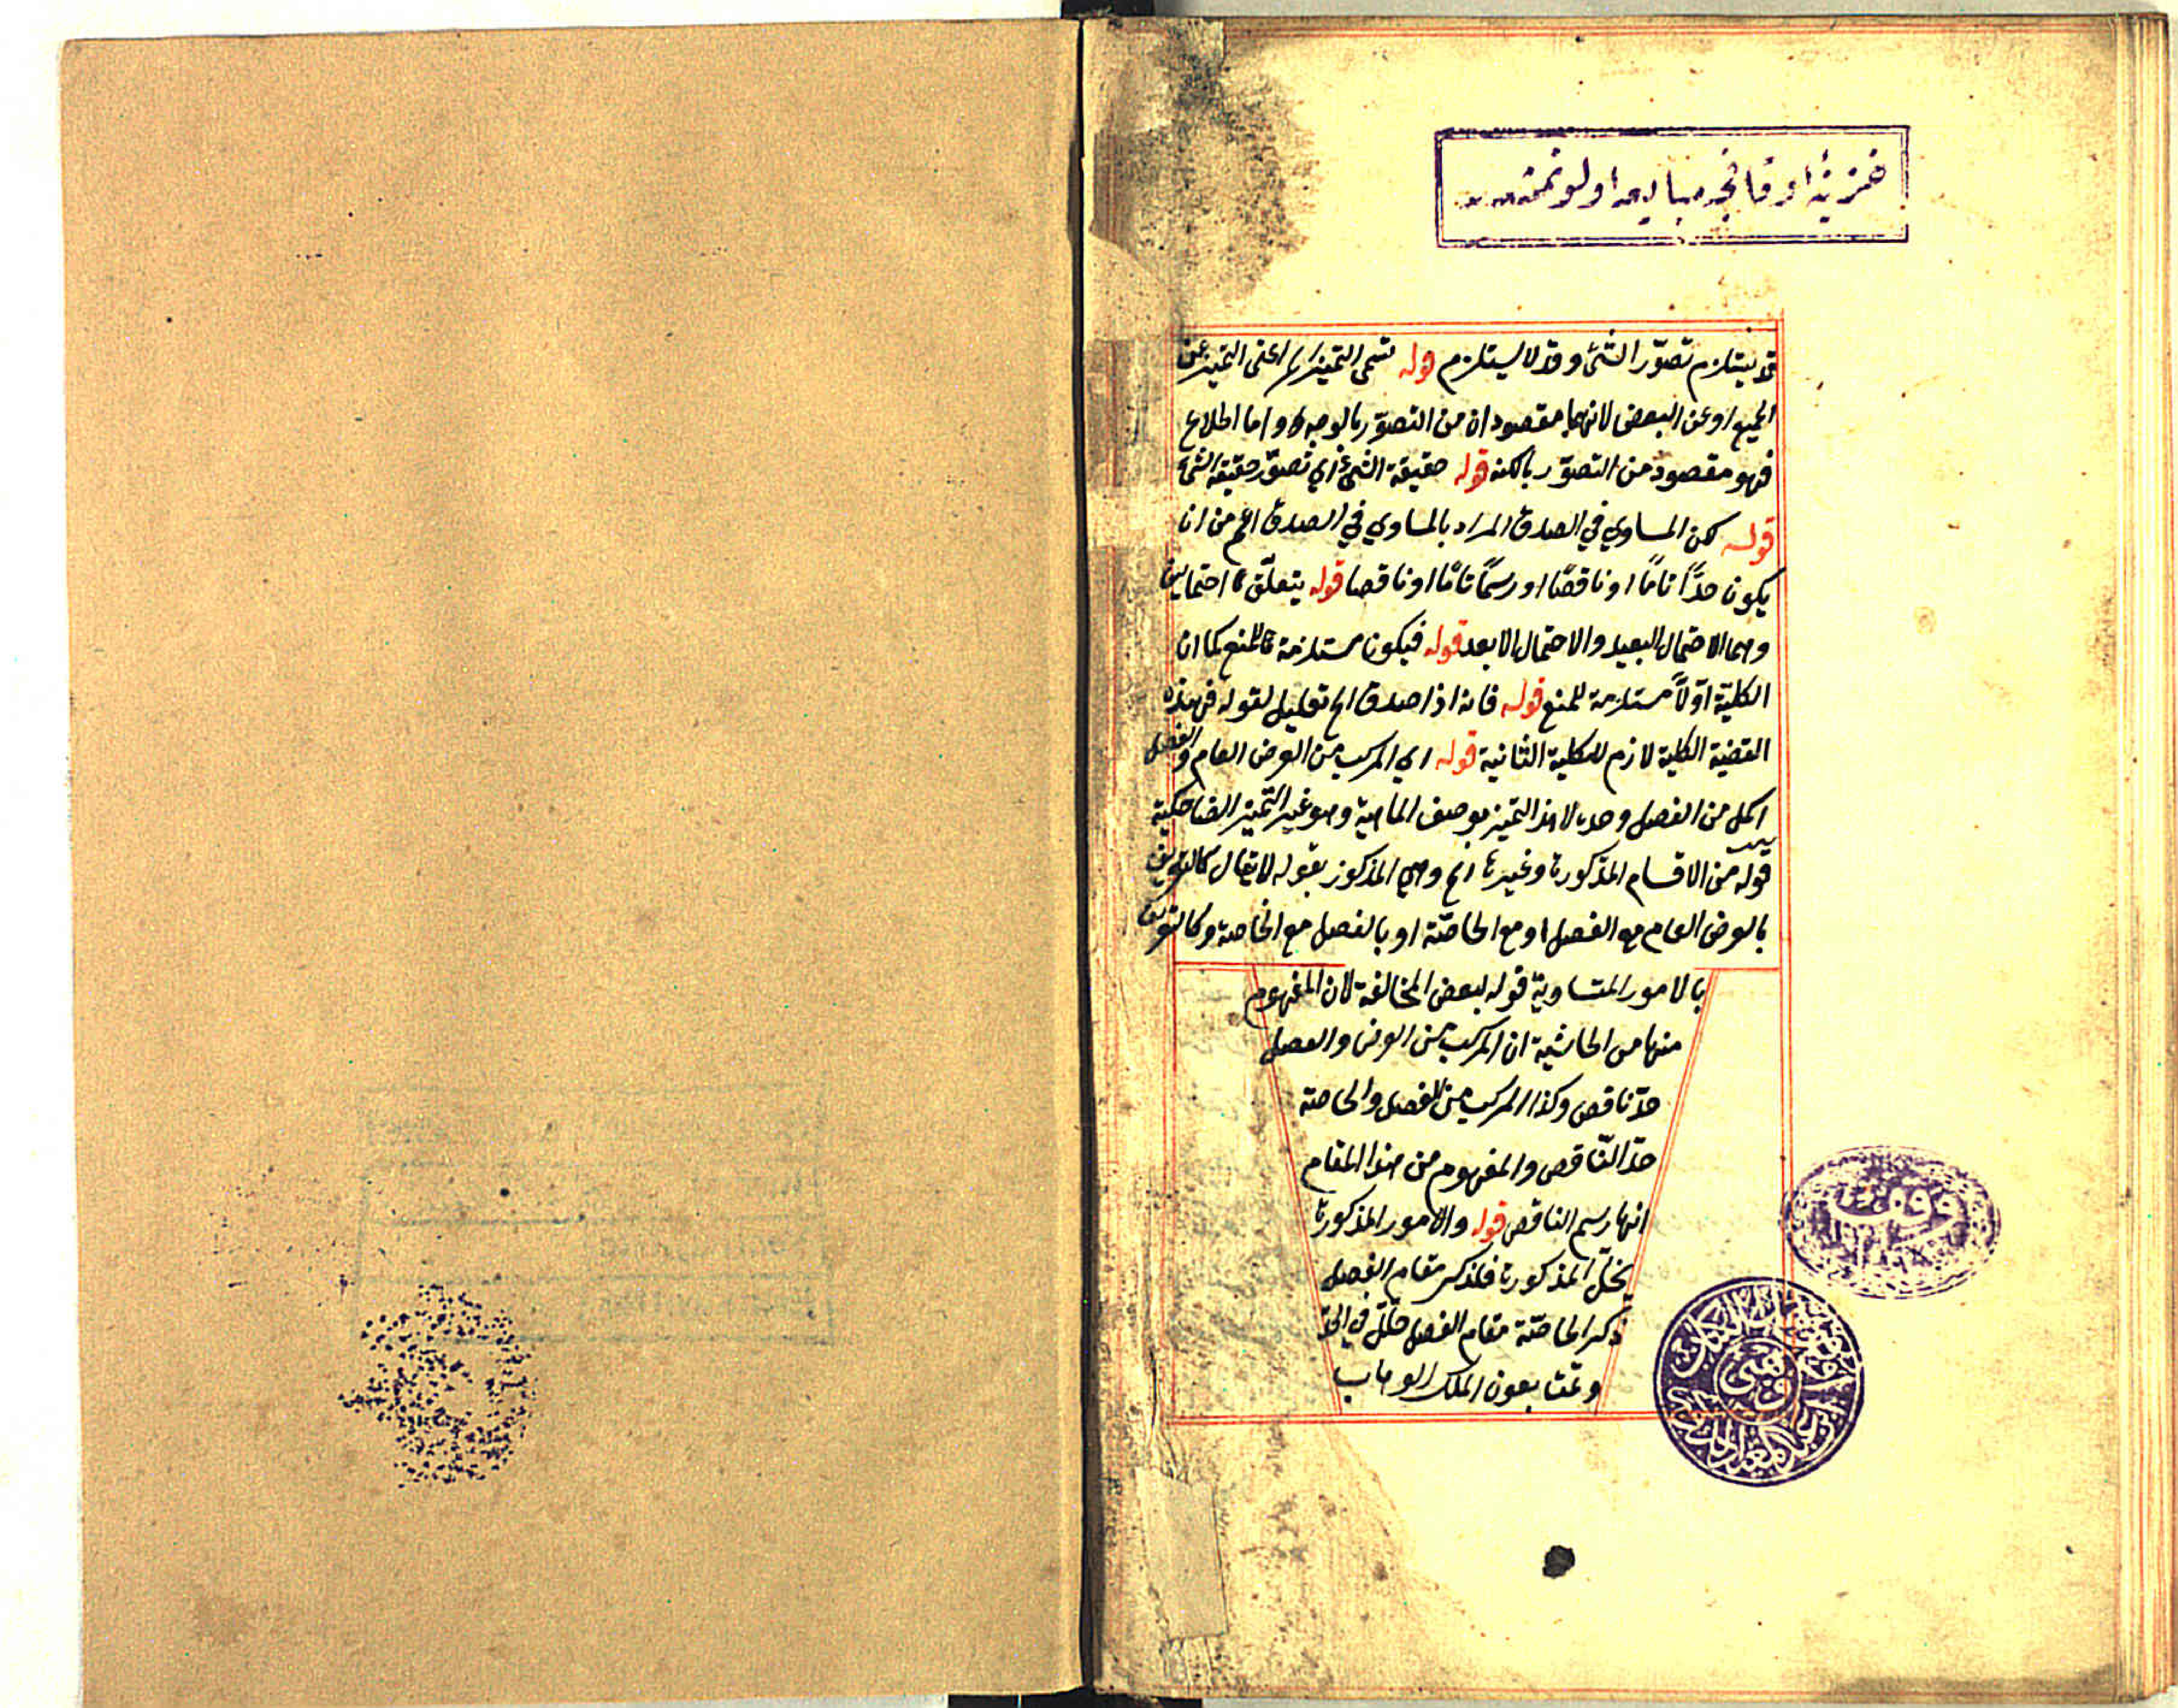 قد يستلزم تصوّر الشئ وقد لا يستلزم قوله التميز الخ اعنى التميز عن
الجميع او عن البعض لانهما مقصودان من التصوّر بالوجه واما اطلاع
فهو مقصود من التصوّر بالكنه قوله حقيقة الشئ اي تصوّر حقيقة الشئ
قوله لكن المساوي في الصدق المراد بالمساوي في الصدق اعم من ان
يكون حدًّا تامًا او ناقصًا او رسمًا تامًا او ناقصا قوله يتعلّق
وهما الاحتمال البعيد والاحتمال الابعد قوله فيكون مستلزمة للمنع كما ان
الكلية اوّلاً مستلزمة للمنع قوله فانه اذا صدق الخ تعليل لقوله فهذه
القضية الكلية لازم للكلية الثانية قوله اي المركب من العرض العام والفصل
اكمل من الفصل وحده التميز بوصف الماهية وهو غير التميز الضاحكية
قوله من الاقسام المذكورة وغيرها الخ وهي المذكور بقوله لا يقال كالتعريف
بالعرض العام مع الفصل او مع الخاصّة او بالفصل مع الخاصة وكالتعريف
بالامور المتساوية قوله لبعض المخالفة لان المفهوم
منها من الحاشية ان المركب من العرض والفصل
حدّ ناقص وكذا المركب من الفصل والخاصة
حدّ النّاقص والمفهوم من هذا المقام
انها رسم الناقص قوله والامور المذكورة
المذكورة فلذكر مقام الفصل
ذكر الخاصّة مقام الفصل خلل في الحدّ
وتمت بعون الملك الوهاب
وقف